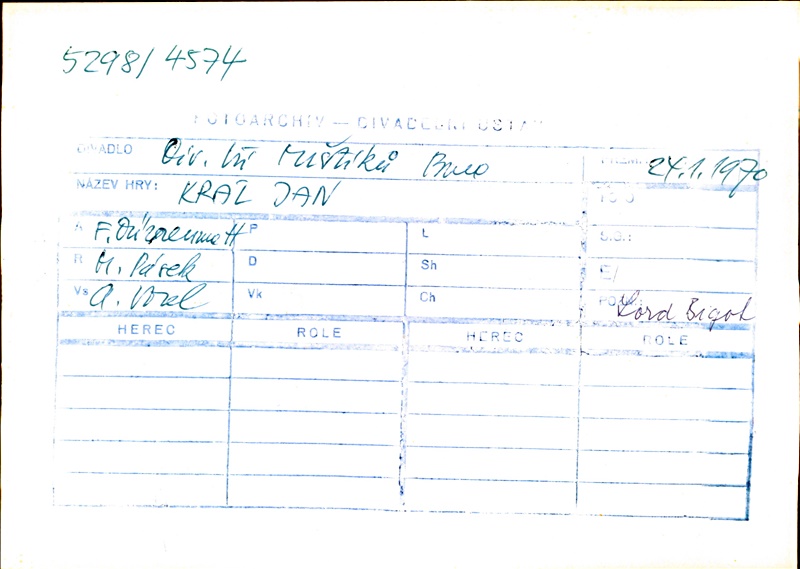 5298/ 4574
FOTOARCHIV — DIVADELNÍ ÚSTAV
DIVADLO Div. bří Mrštíků Brno PREM. 24.1.1970
NÁZEV HRY: KRÁL JAN
A F. Dürrenmatt P L S.O.:
R M. Pásek D Sh E/
Vs A. Vorel Vk Ch POZN. Lord Bigot
HEREC ROLE HEREC ROLE